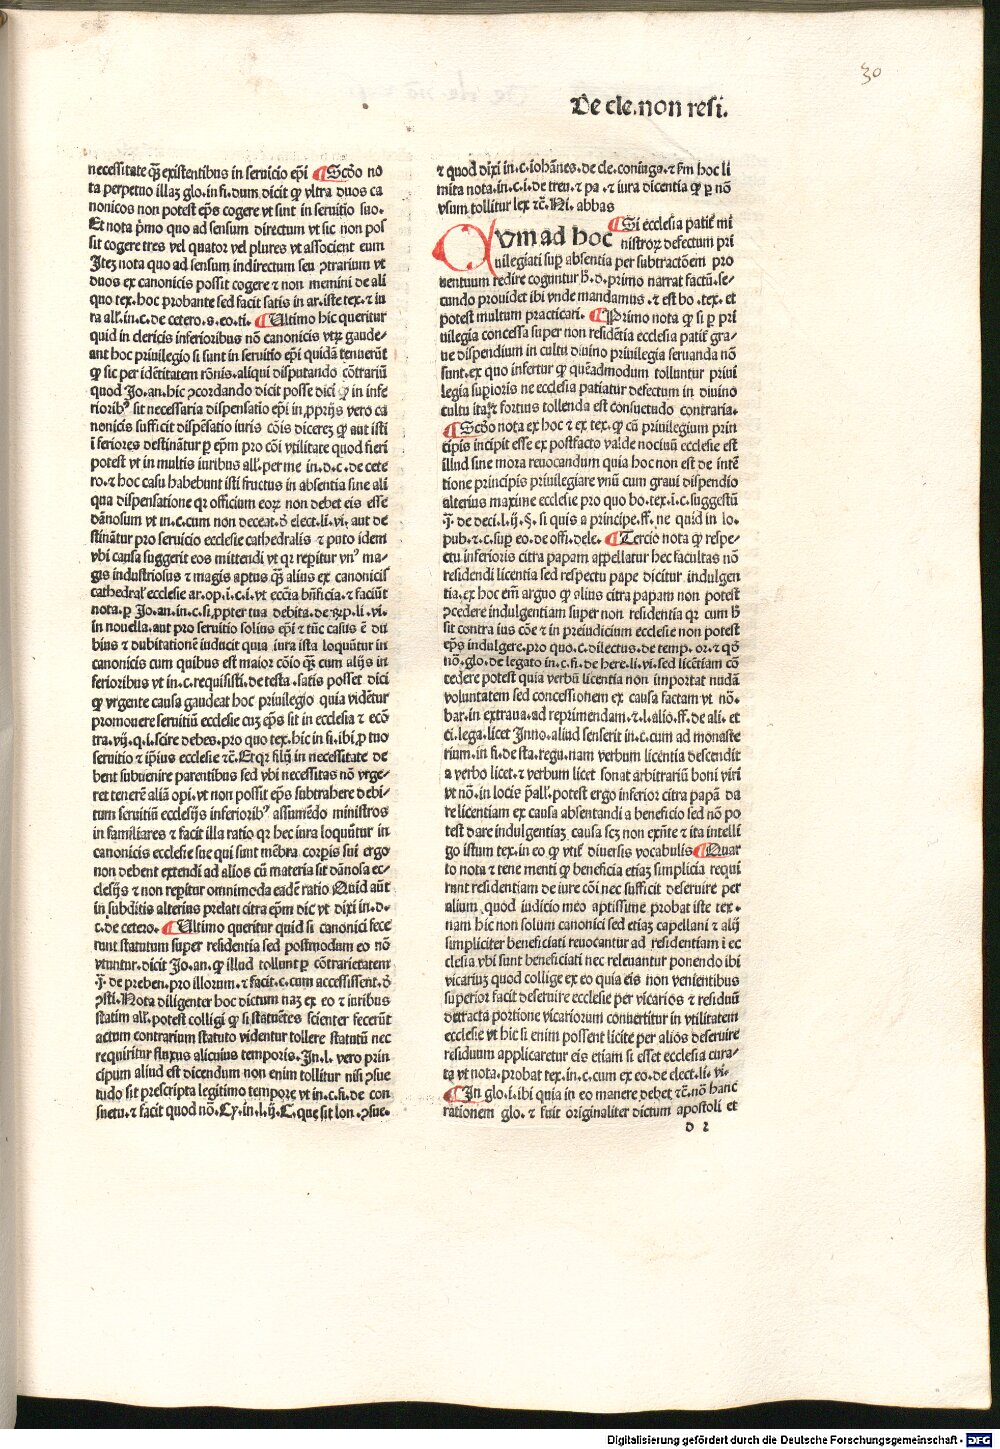 30
De cle.non resi.
necessitate q̃ʒ existentibus in seruicio ep̄i ¶ Scd̄o no
ta perpetuo illaʒ glo.in fi.dum dicit ꝙ vltra duos ca
nonicos non potest ep̄s cogere vt sint in seruitio suo.
Et nota p̄mo quo ad sensum directum vt sic non pos
sit cogere tres vel quator vel plures vt associent eum
Iteʒ nota quo ad sensum indirectum seu ꝯtrarium vt
duos ex canonicis possit cogere ⁊ non memini de ali
quo tex.hoc probante sed facit satis in ar.iste tex.⁊ iu
ra all'.in.c.de cetero.s.eo.ti. ¶ Ultimo hic queritur
quid in clericis inferioribus nō canonicis vtrʒ gaude⸗
ant hoc priuilegio si sunt in seruitio ep̄i quidā tenuerūt
ꝙ sic per idētitatem rōnis.aliqui disputando cōtrariū
quod Jo.an.hic ꝯcordando dicit posse dici ꝙ in infe
rioribꝰ sit necessaria dispensatio ep̄i in ꝓprijs vero ca
nonicis sufficit dispēsatio iuris cōis dicereʒ ꝙ aut isti
īferiores destinātur ꝑ ep̄m pro cōi vtilitate quod fieri
potest vt in multis iuribus all'.per me in.d.c.de cete
ro.⁊ hoc casu habebunt isti fructus in absentia sine ali
qua dispensatione qr officium eorʒ non debet eis esse
dānosum vt in.c.cum non deceat.d̄ elect.li.vi.aut de
stinātur pro seruicio ecclesie cathedralis ⁊ puto idem
vbi causa suggerit eos mittendi vt qr reperitur vnꝰ ma⸗
gis industriosus ⁊ magis aptus q̃ʒ alius ex canonicis
cathedral' ecclesie ar.op.i.c.i.vt eccīa bn̄ficia.⁊ faciūt
nota.ꝑ Jo.an.in.c.si ꝓpter tua debita.de rꝫp.li.vi.
in nouella.aut pro seruitio solius ep̄i ⁊ tūc casus ē du
bius ⁊ dubitationē inducit quia iura ista loquūtur in
canonicis cum quibus est maior cōio q̃ʒ cum alijs in
ferioribus vt in.c.requisisti.de testa.satis posset dici
ꝙ vrgente causa gaudeat hoc priuilegio quia vidētur
promouere seruitiū ecclesie cuʒ ep̄s sit in ecclesia ⁊ ecō
tra.vij.q.i.scire debes.pro quo tex.hic in fi.ibi ꝓ tuo
seruitio ⁊ ip̄ius ecclesie ⁊c̄.Et qr filij in necessitate de
bent subuenire parentibus sed vbi necessitas nō vrge⸗
ret tenerē aliā opi.vt non possit ep̄s subtrahere debi⸗
tum seruitiū ecclesijs inferioribꝰ assumēdo ministros
in familiares ⁊ facit illa ratio qr hec iura loquūtur in
canonicis ecclesie sue qui sunt mēbra corp̄is sui ergo
non debent extendi ad alios cū materia sit dānosa ec⸗
clesijs ⁊ non rep̄itur omnimoda eadē ratio Quid aūt
in subditis alterius prelati citra ep̄m dic vt dixi in.d.
c.de cetero. ¶ Ultimo queritur quid si canonici fece
runt statutum super residentia sed postmodum eo nō
vtuntur.dicit Jo.an.ꝙ illud tollunt ꝑ cōtrarietatem
.j̄.de preben.pro illorum.⁊ facit.c.cum accessissent.d̄
ꝯsti.Nota diligenter hoc dictum naʒ ex eo ⁊ iuribus
statim all'.potest colligi ꝙ si statuētes scienter fecerūt
actum contrarium statuto videntur tollere statutū nec
requiritur fluxus alicuius temporis.In.l.vero prin
cipum aliud est dicendum non enim tollitur nisi ꝯsue
tudo sit prescripta legitimo tempore vt in.c.fi.de con
suetu.⁊ facit quod nō.Cy.in.l.ij.C.que sit lon.ꝯsue.
⁊ quod dixi in.c.iohānes.de cle.coniuga.⁊ ẜm hoc li
mita nota.in.c.i.de treu.⁊ pa.⁊ iura dicentia ꝙ ꝑ nō
vsum tollitur lex ⁊c̄.Ni.abbas
Qvm ad hoc ¶ Si ecclesia patit' mi
nistrorʒ defectum pri
uilegiati suꝑ absentia per subtractōem pro
uentuum redire coguntur h̄.d.primo narrat factū.se⸗
cundo prouidet ibi vnde mandamus.⁊ est bo.tex.et
potest multum practicari. ¶ Primo nota ꝙ si ꝑ pri
uilegia concessa super non residētia ecclesia patit' gra⸗
ue dispendium in cultu diuino priuilegia seruanda nō
sunt.ex quo infertur ꝙ quēadmodum tolluntur priui
legia suꝑioris ne ecclesia patiatur defectum in diuino
cultu ita ⁊ fortius tollenda est consuetudo contraria.
¶ Scd̄o nota ex hoc ⁊ ex tex.ꝙ cū priuilegium prin
cipis incipit esse ex postfacto valde nociuū ecclesie est
illud sine mora reuocandum quia hoc non est de intē
tione principis priuilegiare vnū cum graui dispendio
alterius maxime ecclesie pro quo bo.tex.i.c.suggestū
.j̄.de deci.l.ij.§.si quis a principe.ff.ne quid in lo.
pub.⁊.c.suꝑ eo.de offi.dele. ¶ Tercio nota ꝙ respe⸗
ctu inferioris citra papam appellatur hec facultas nō
residendi licentia sed respectu pape dicitur indulgen
tia.ex hoc em̄ arguo ꝙ alius citra papam non potest
ꝯcedere indulgentiam super non residentia qr cum h̄
sit contra ius cōe ⁊ in preiudicium ecclesie non potest
ep̄s indulgere.pro quo.c.dilectus.de temp.or.⁊ qđ
nō.glo.de legato in.c.fi.de here.li.vi.sed licētiam cō
cedere potest quia verbū licentia non importat nudā
voluntatem sed concessionem ex causa factam vt nō.
bar.in extraua.ad reprimendam.⁊.l.alio.ff.de ali.et
ci.lega.licet Inno.aliud senserit in.c.cum ad monaste
rium.in fi.de sta.regu.nam verbum licentia descendit
a verbo licet.⁊ verbum licet sonat arbitrariū boni viri
vt nō.in locis p̄all'.potest ergo inferior citra papā da
re licentiam ex causa absentandi a beneficio sed nō po
test dare indulgentiaʒ causa scʒ non exn̄te ⁊ ita intelli
go istum tex.in eo ꝙ vtit' diuersis vocabulis ¶ Quar
to nota ⁊ tene menti ꝙ beneficia etiaʒ simplicia requi
runt residentiam de iure cōi nec sufficit deseruire per
alium quod iudicio meo aptissime probat iste tex.
nam hic non solum canonici sed etiaʒ capellani ⁊ alij
simpliciter beneficiati reuocantur ad residentiam ī ec
clesia vbi sunt beneficiati nec releuantur ponendo ibi
vicariuʒ quod collige ex eo quia eis non venientibus
superior facit deseruire ecclesie per vicarios ⁊ residuū
detracta portione vicariorum conuertitur in vtilitatem
ecclesie vt hic si enim possent licite per alios deseruire
residuum applicaretur eis etiam si esset ecclesia cura⸗
ta vt nota.probat tex.in.c.cum ex eo.de elect.li.vi.
¶ In glo.i.ibi quia in eo manere debet ⁊c̄.nō hanc
rationem glo.⁊ fuit originaliter dictum apostoli et
d 2
Digitalisierung gefördert durch die Deutsche Forschungsgemeinschaft - DFG